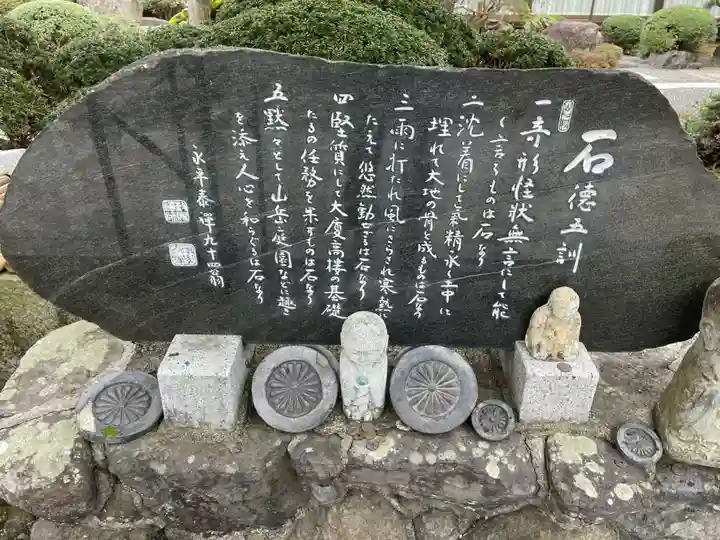 石徳五訓
一 奇形怪状無言にして能
く言うものは石なり
二 沈着にして気精永く土中に
埋れて大地の骨と成るものは石なり
三 雨に打たれ風にさらされ寒熱に
たえて悠然動ぜざるは石なり
四 堅質にして大厦高楼の基礎
たるの任務を果すものは石なり
五 黙々として山岳庭園などに趣き
を添え人心を和らぐるは石なり
永平泰禅九十四翁